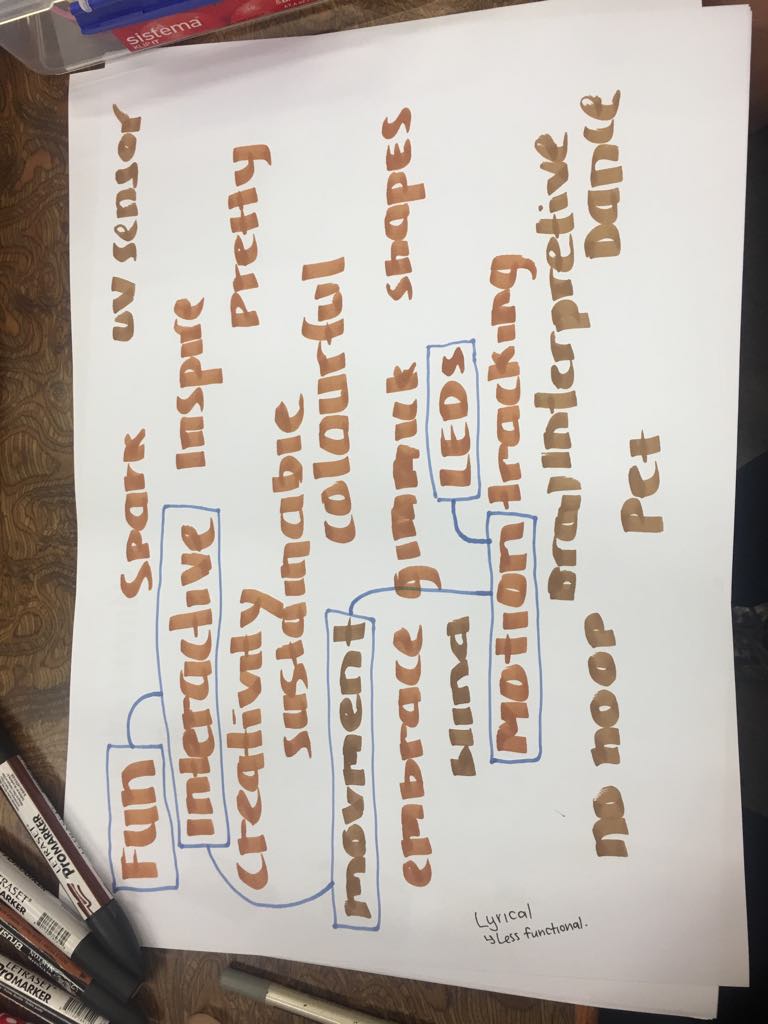 sistema
KLIP IT
Fun Spark UV sensor
interactive Inspire
Creativity Pretty
sustainable
colourful
movment
embrace gimmick shapes
blind LEDs
Motion tracking
Brail Interpretive
Dance
no noop Pct
Lyrical
↳ Less functional.
LETRASET
PROMARKER
LETRASET
PROMARKER
LETRASET
PROMARKER